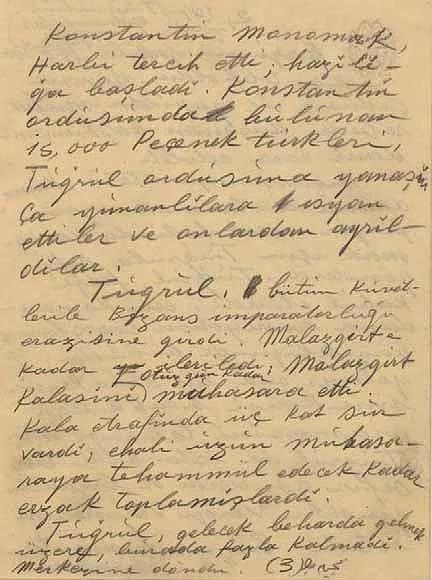 Konstantin Monomak,
Harbi tercih etti; hazirli-
ğa başladi. Konstantin
ordüsünda bülünan
15,000 Peçenek türkleri,
Tüğrül ordüsüna yanaşin
ça yünanlilara isyan
ettiler ve onlardan ayril-
dilar.
Tüğrül, bütün küvvet-
lerile Bizans imparatorlüğü
erazisine girdi. Malazgirte
kadar ilerledi; Malazgirt
Kalasini otüz gün kadar muhasara etti.
Kala etrafinda üç kat sür
vardi; ehali üzün mühasa-
raya tehammul edecek kadar
erzak toplamişlardi.
Tüğrül, gelecek beharda gelmek
üzere, bürada fazla kalmadi.
Merkezine döndü. (3)